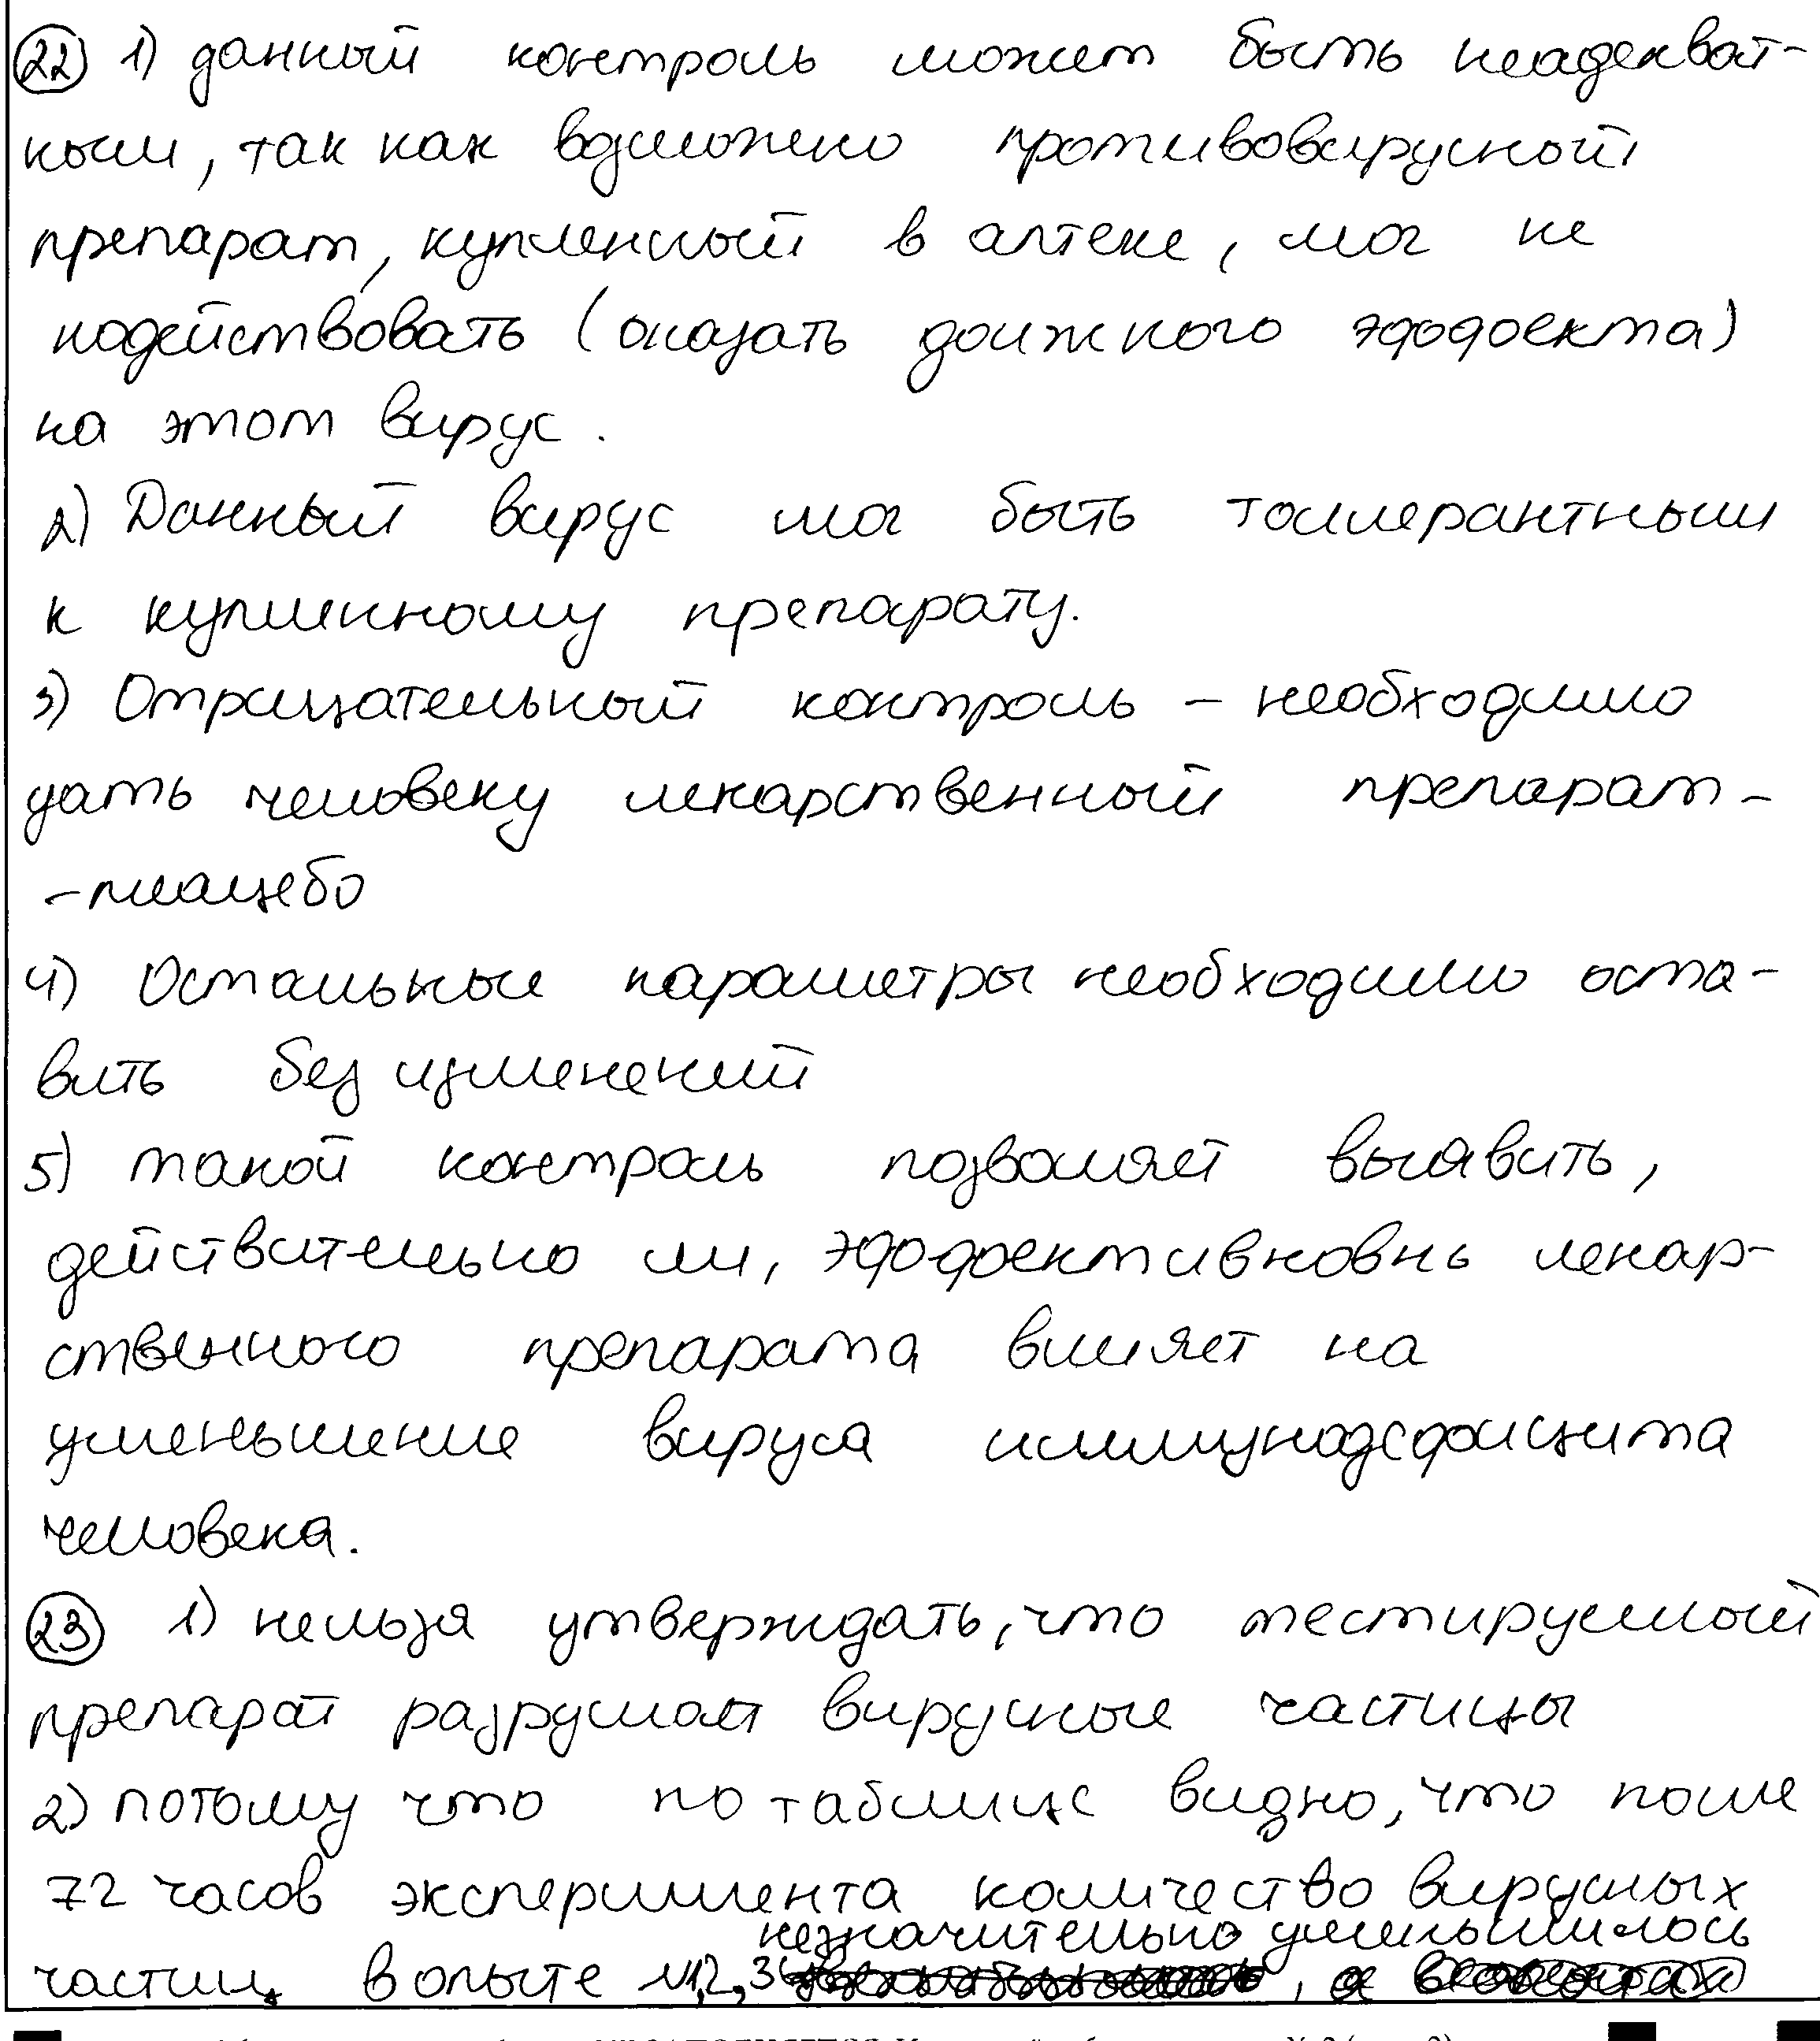 22 1) данный контроль может быть неадекват-
ным, так как возможно противовирусный
препарат, купленный в аптеке, мог не
подействовать (оказать должного эффекта)
на этот вирус.
2) Данный вирус мог быть толлерантным
к купленному препарату.
3) Отрицательный контроль - необходимо
дать человеку лекарственный препарат-
-плацебо
4) Остальные параметры необходимо оста-
вить без изменений
5) такой контроль позволяет выявить,
действительно ли, эффективновнь лекар-
ственного препарата влияет на
уменьшение вируса иммунодефицита
человека.
23 1) нельзя утверждать, что тестируемый
препарат разрушает вирусные частицы
2) потому что по таблице видно, что после
72 часов эксперимента количество вирусных
незначительно уменьшилось
частиц в опыте №1,2,3 , а